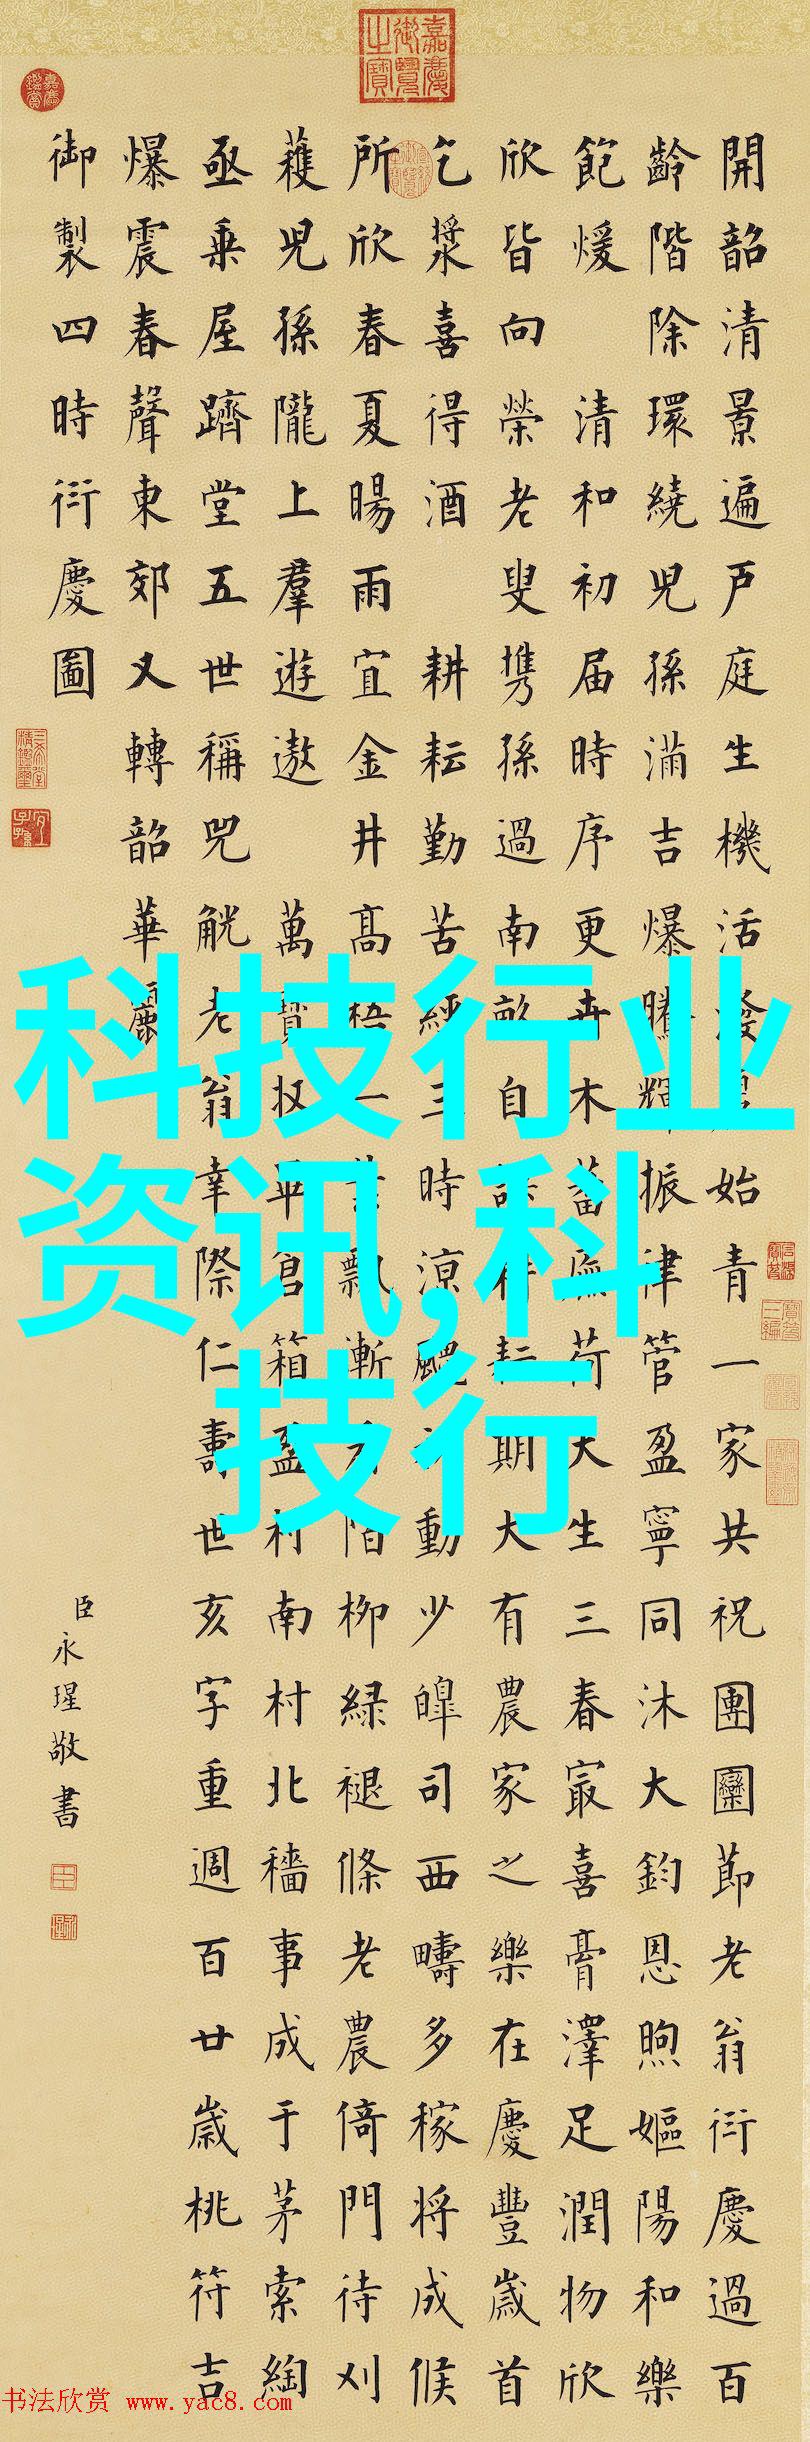 嘉慶御覽之寶
嘉慶鑑賞
開韶清景遍戸庭生機活始青一家共祝團圞節老翁衍慶過百
齡階除環繞兒孫滿吉爆騰輝振律管盈寧同沐大鈞恩煦嫗陽和樂
飽煖清和初届時序更卉木蕃廡荷大生三春㝡喜膏澤足潤物欣
欣皆向榮老叟攜孫過南畝自耘期大有農家之樂在慶豐歲首
乞漿喜得酒耕耘勤苦經三時涼颸動少皞司西疇多稼將成候
所欣春夏暘雨宜金井高梧一葉飄漸看陌柳緑褪條老農倚門待刈
穫兒孫隴上羣遊遨萬寶收畢倉箱盈村南村北穡事成于茅索綯
亟乗屋躋堂五世稱兕觥老翁幸際仁壽世亥字重週百廿歲桃符吉
爆震春聲東郊又轉韶華麗
御製四時衍慶圖
臣永瑆敬書
三希堂精鑑璽
宜子孫
科技行业
资讯,科
技行
书法欣赏 www.yac8.com